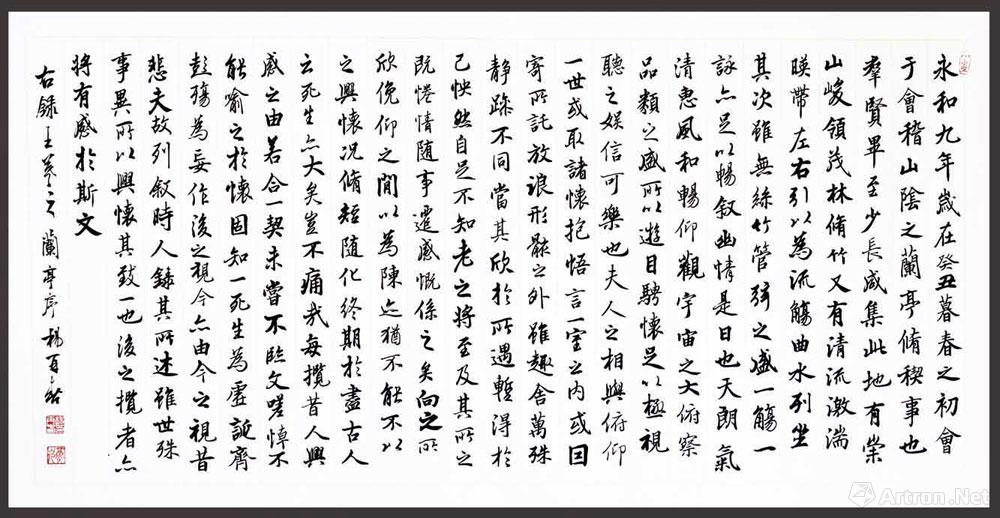 永和九年歲在癸丑暮春之初會
于會稽山陰之蘭亭脩稧事也
羣賢畢至少長咸集此地有崇
山峻領茂林脩竹又有清流激湍
暎帶左右引以為流觴曲水列坐
其次雖無絲竹管弦之盛一觴一
詠亦足以暢叙幽情是日也天朗氣
清惠風和暢仰觀宇宙之大俯察
品類之盛所以遊目騁懷足以極視
聽之娛信可樂也夫人之相與俯仰
一世或取諸懷抱悟言一室之內或因
寄所託放浪形骸之外雖趣舍萬殊
静躁不同當其欣於所遇暫得於
己怏然自足不知老之將至及其所之
既惓情随事遷感慨係之矣向之所
欣俛仰之間以為陳迹猶不能不以
之興懷况脩短随化終期於盡古人
云死生亦大矣豈不痛哉每攬昔人興
感之由若合一契未嘗不臨文嗟悼不
能喻之於懷固知一死生為虛誕齊
彭殤為妄作後之視今亦由今之視昔
悲夫故列叙時人錄其所述雖世殊
事異所以興懷其致一也後之攬者亦
將有感於斯文
右錄王羲之蘭亭序楊
Artron.Net